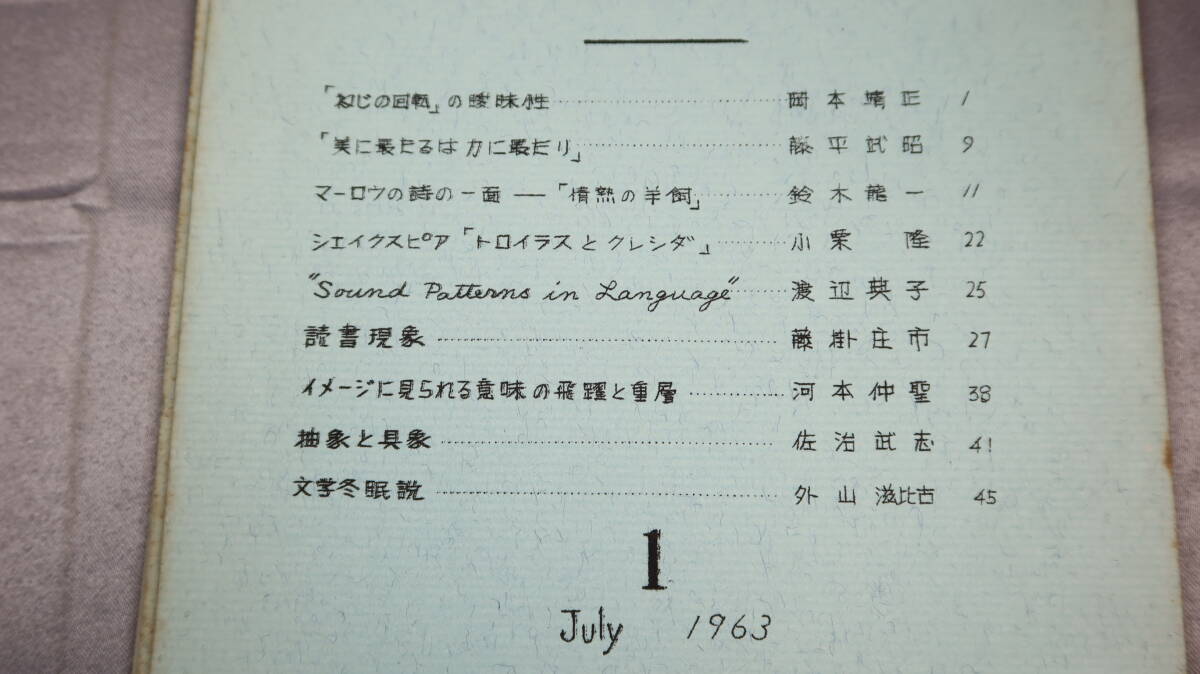 「ねじの回転」の曖昧性………………岡本靖正 1
「美に最たるは力に最たり」………………藤平武昭 9
マーロウの詩の一面 ―― 「情熱の羊飼」………藤木龍一 11
シェイクスピア「トロイラスとクレシダ」………小栗 隆 22
"Sound Patterns in Language"………渡辺典子 25
読書現象………………藤掛庄市 27
イメージに見られる意味の飛躍と重層………河本仲聖 38
抽象と具象………………佐治武志 41
文学冬眠説………………外山滋比古 45
1
July 1963